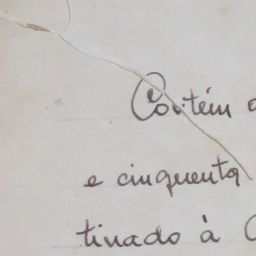 Contém
e cinquenta
tinado à